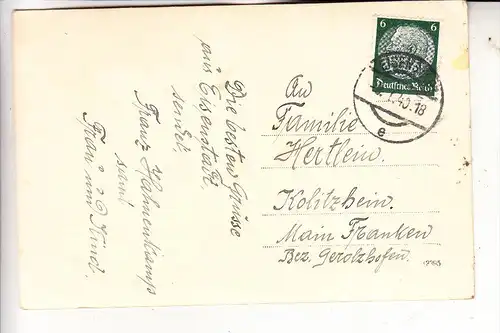 Die besten Grüsse
aus Eisenstadt,
sendet.
Franz Hahnenkamp
samt
Frau und Kind.
An
Familie
Hertlein.
Kolitzheim.
Main Franken
Bez. Gerolzhofen.
6 6
Deutsches Reich
40.18
e